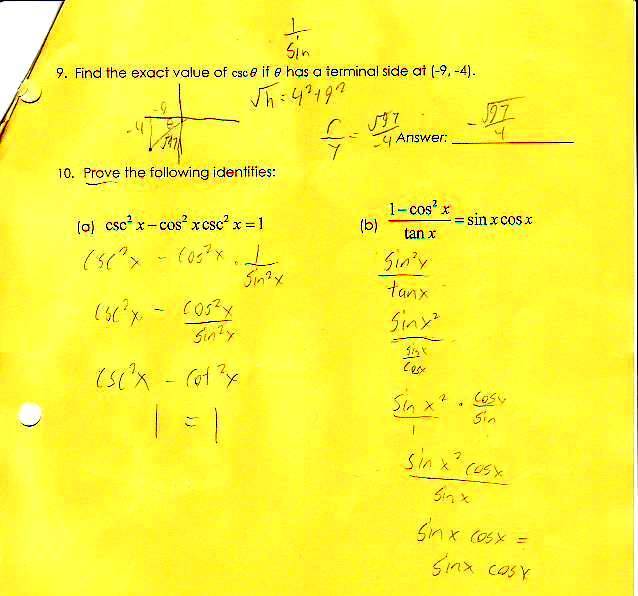 1
Sin
9. Find the exact value of csc θ if θ has a terminal side at (-9, -4).
√h = 4²+9²
-9
-4 θ
√97
r/y = √97/-4 Answer: -√97/4
10. Prove the following identities:
(a) csc² x − cos² x csc² x = 1
(b) 1 − cos² x / tan x = sin x cos x
csc²x - cos²x · 1/Sin²x
Sin²x / tanx
csc²x - cos²x / Sin²x
Sinx² / Sinx / Cosx
csc²x - cot²x
Sin x² / 1 · Cosx / Sin
1 = 1
Sin x² cosx / Sin x
Sinx cosx =
Sinx cosx